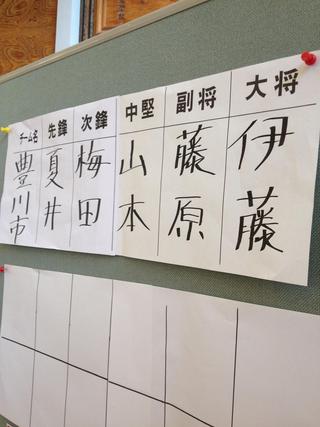 チーム名 先鋒 次鋒 中堅 副将 大将
豊川市 夏井 梅田 山本 藤原 伊藤